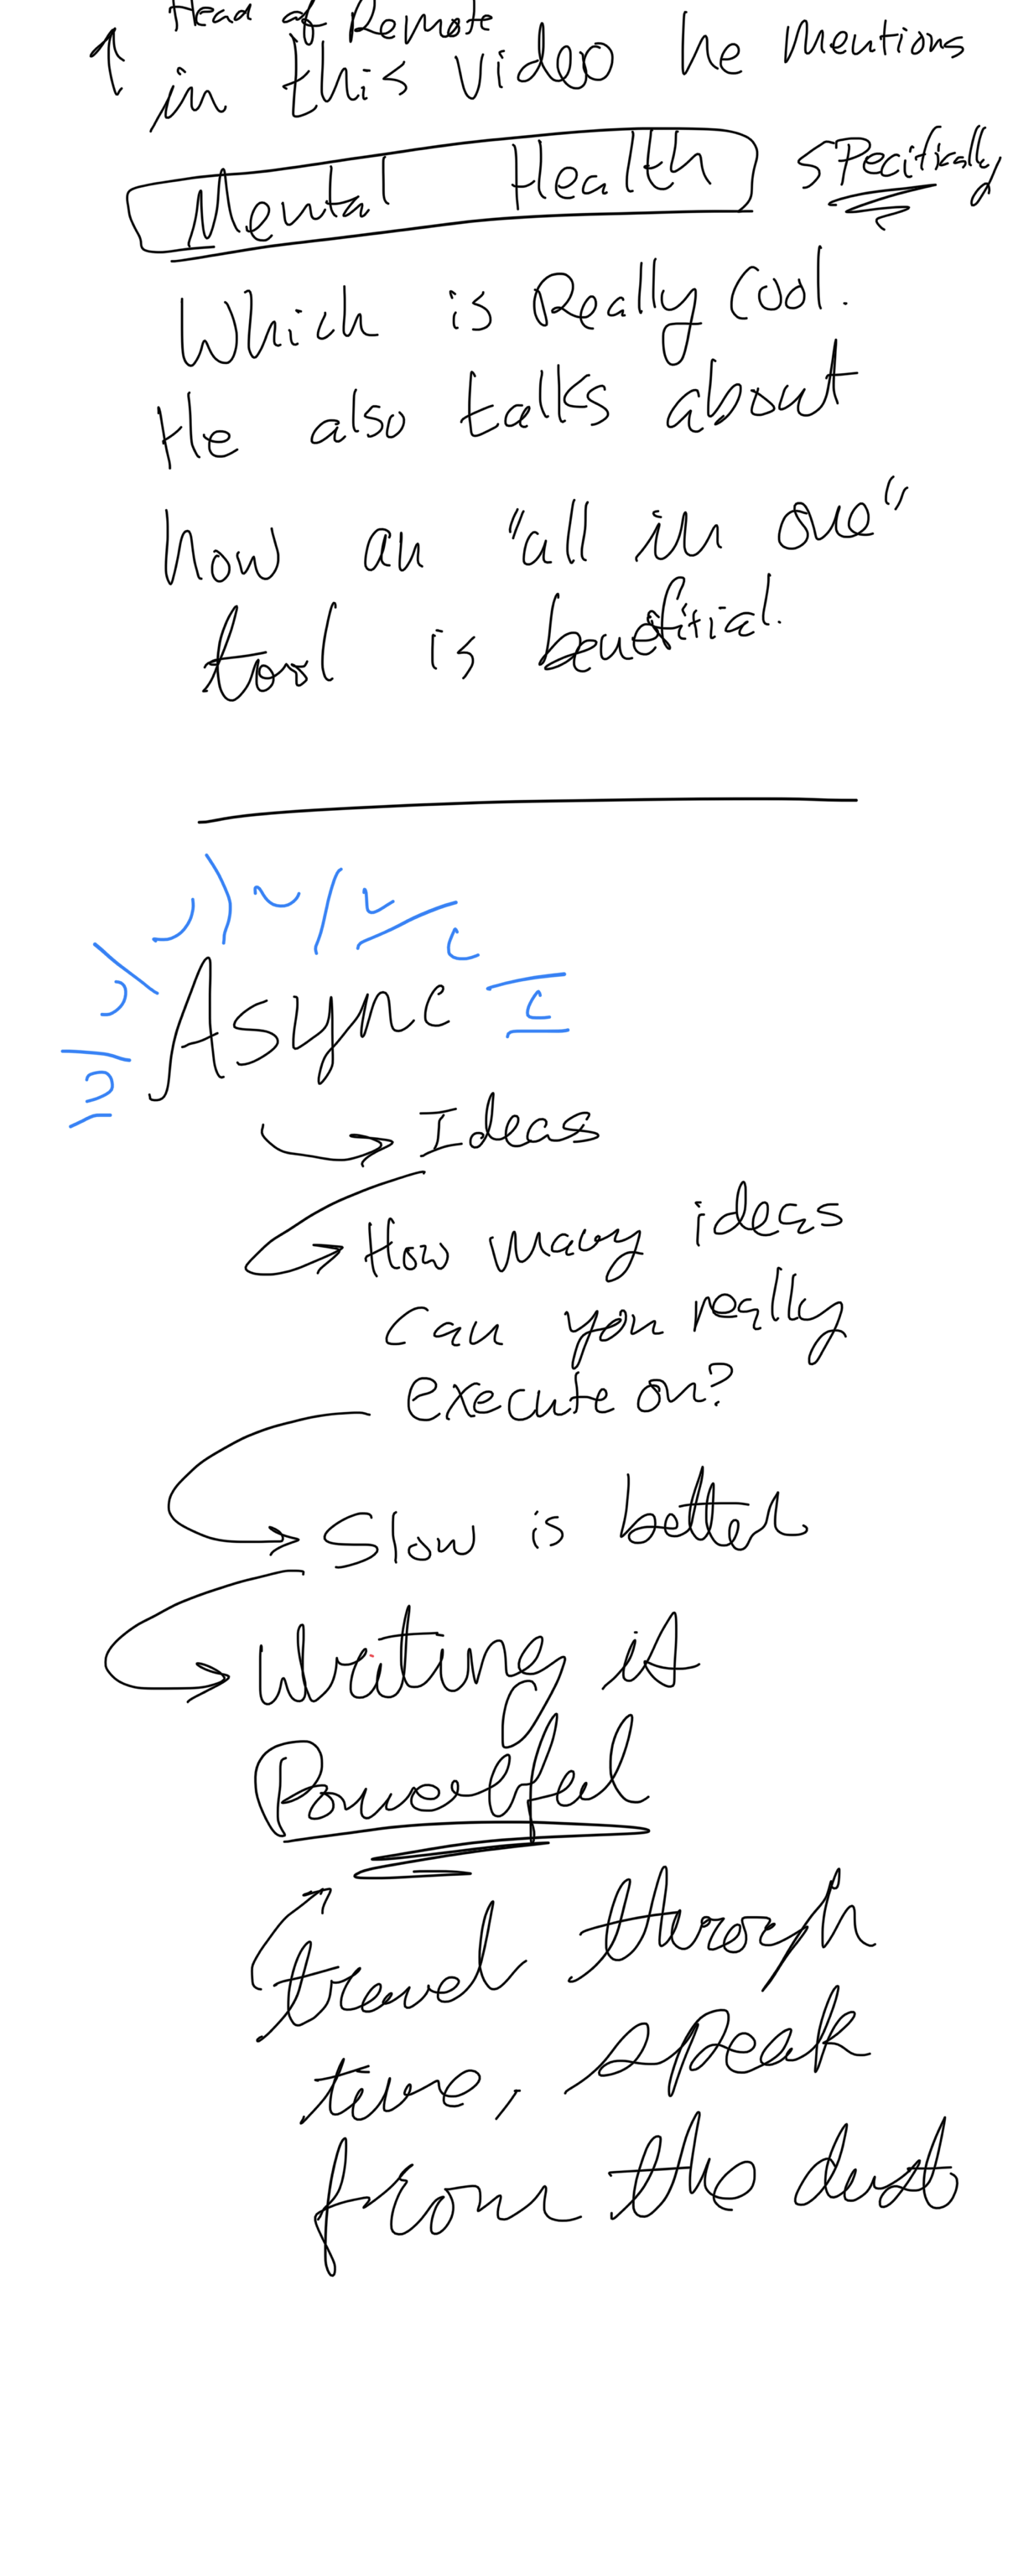 Head of Remote
in this video he mentions
Mental Health specifically
Which is Really Cool.
He also talks about
how an "all in one"
tool is benefitial.
Async
Ideas
How many ideas
can you really
execute on?
Slow is better
Writing is
Powerful
travel through
time, speak
from the dust